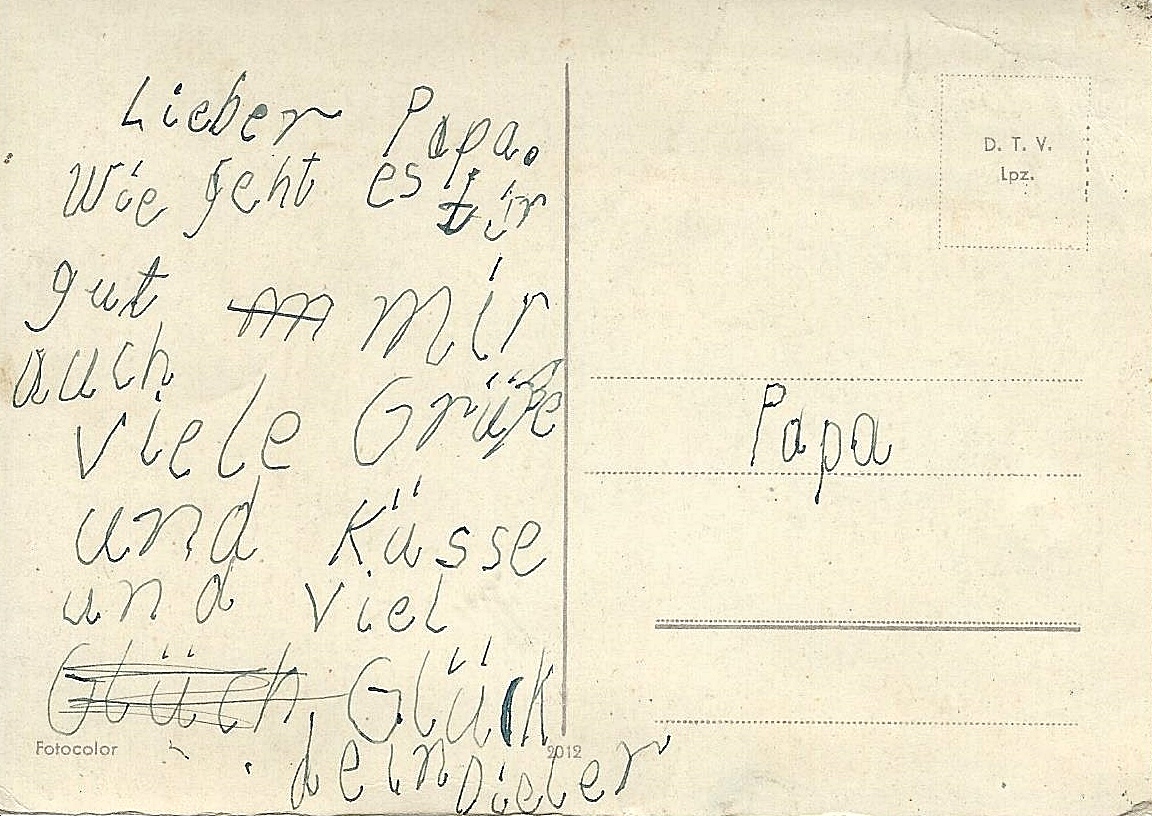 Lieber Papa.
Wie geht es
dir
gut mir
auch
Viele Grüße
und Küsse
und Viel
Glüch Glück
dein Dieter
Fotocolor
2012
D. T. V.
Lpz.
Papa